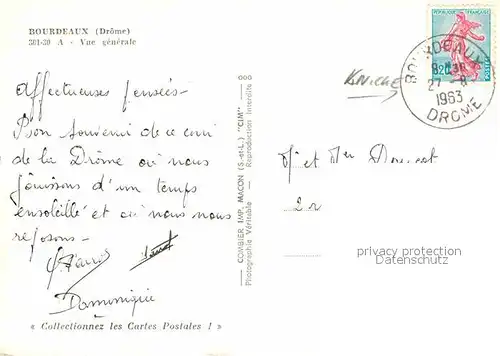 BOURDEAUX (Drôme)
301-30 A - Vue générale
Affectueuses pensées -
Bon souvenir de ce coin
de la Drôme où nous
jouissons d'un temps
ensoleillé et où nous nous
reposons -
Dominique
« Collectionnez les Cartes Postales ! »
COMBIER IMP. MACON (S.-et-L.) "CIM"
Photographie Véritable - Reproduction interdite
REPUBLIQUE FRANÇAISE
0,20
POSTES
BOURDEAUX
27 - 8
1963
DROME
Mr et Mme
privacy protection
Datenschutz